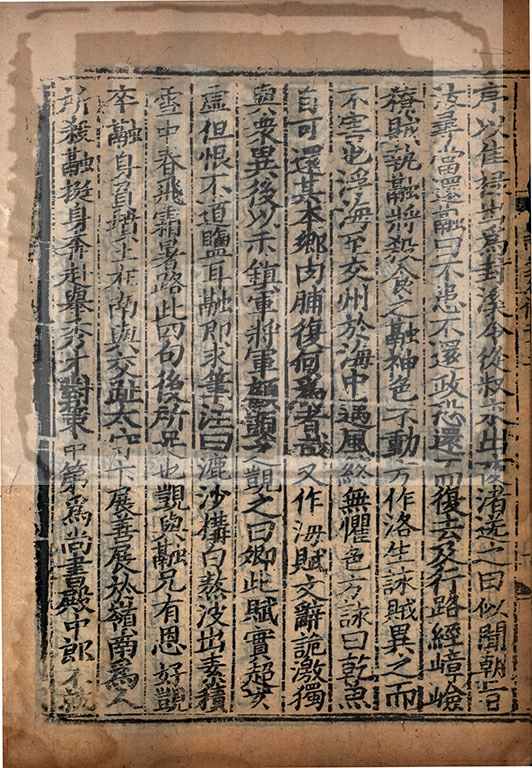 序以佳祿出為封溪令從叔永出後渚送之曰似聞朝旨
汝尋當還融曰不患不還政恐還而復去及行路經嶂嶮
獠賊執融將殺食之融神色不動方作洛生詠賊異之而
不害也浮海至交州於海中遇風終無懼色方詠曰乾魚
自可還其本鄉肉脯復何為者哉又作海賦文辭詭激獨
與衆異後以示鎮軍將軍顧覬之覬之曰卿此賦實超玄
虛但恨不道鹽耳融即求筆注曰漉沙構白熬波出素積
雪中春飛霜暑路此四句後所足也覬與融兄有恩好覬
卒融身負墳土在南與交趾太守卞展善展於嶺南為人
所殺融挺身奔赴舉秀才對策中第為尚書殿中郎不就